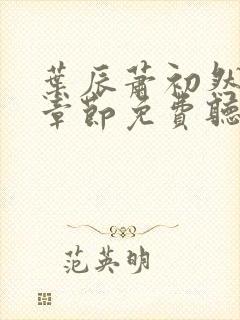 葉辰蕭初然
章節免費聽
范英明